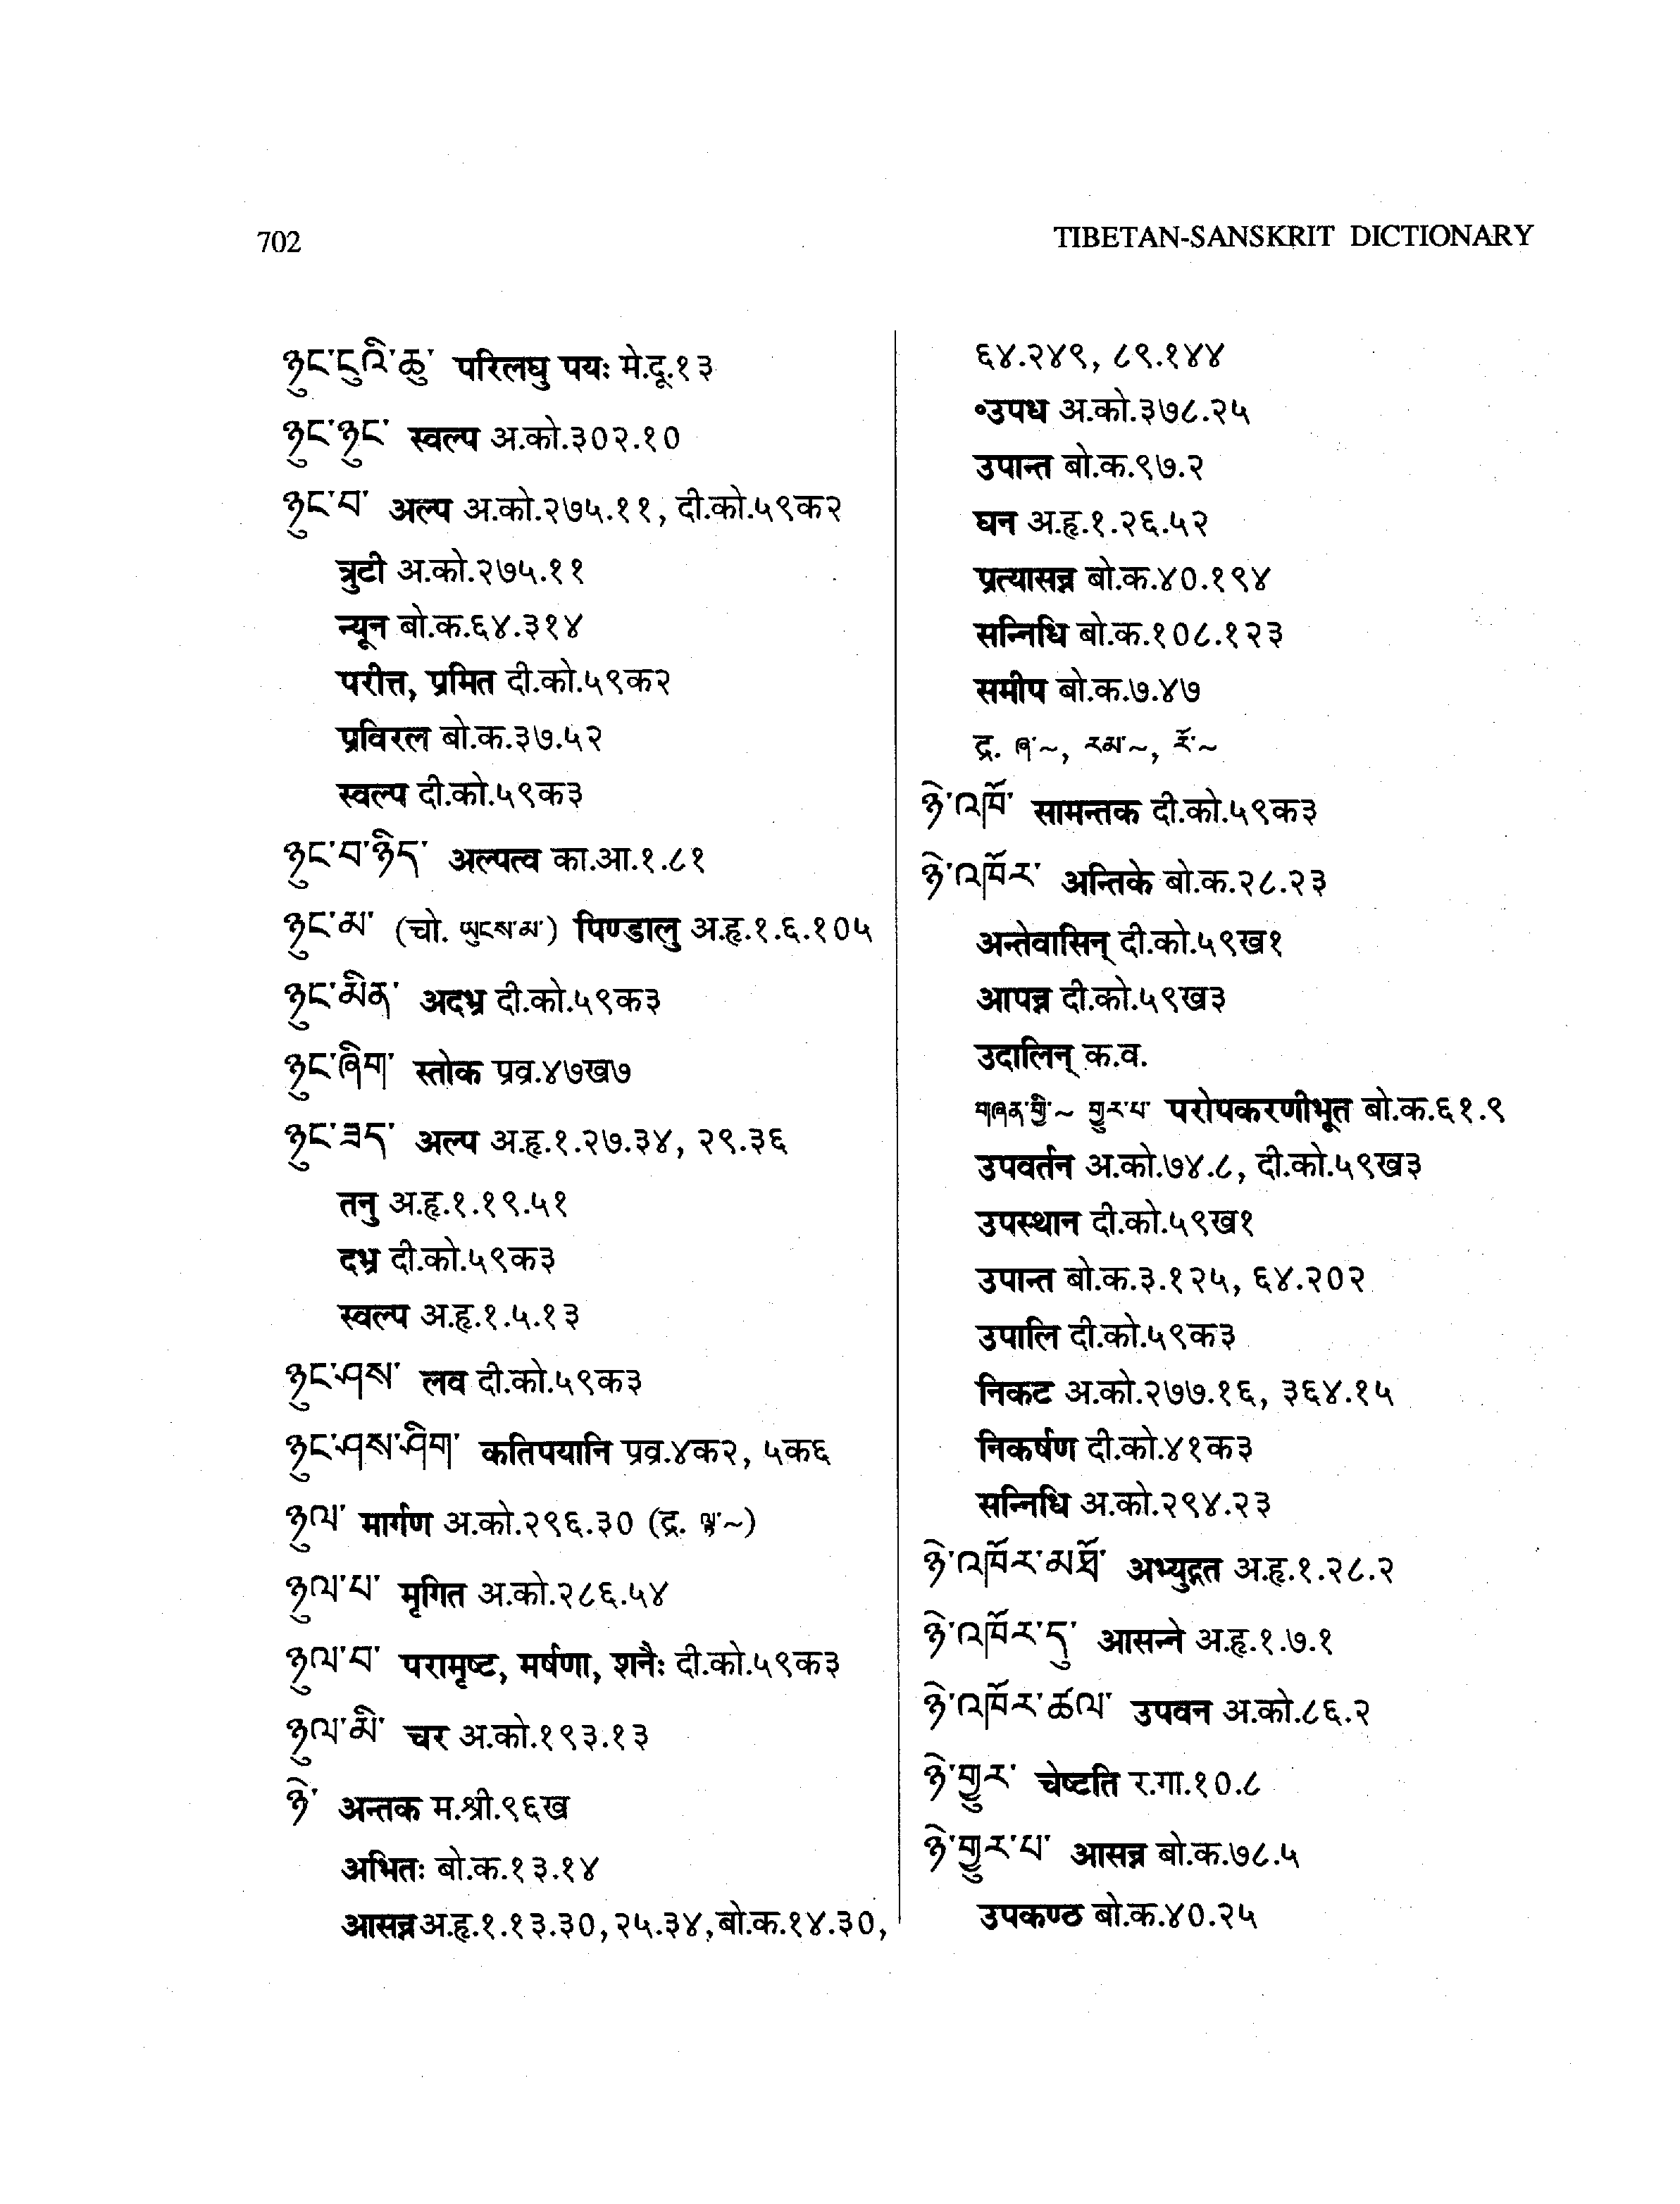 702
TIBETAN-SANSKRIT DICTIONARY
ཉུང་ངུའི་ཆུ་ परिलघु पयः मे.दू.१३
ཉུང་ཉུང་ स्वल्प अ.को.३०२.१०
ཉུང་བ་ अल्प अ.को.२७५.११, दी.को.५९क२
त्रुटी अ.को.२७५.११
न्यून बो.क.६४.३१४
परीत्त, प्रमित दी.को.५९क२
प्रविरल बो.क.३७.५२
स्वल्प दी.को.५९क३
ཉུང་བ་ཉིད་ अल्पत्व का.आ.१.८१
ཉུང་མ་ (चो. ཡུངས་མ་) पिण्डालु अ.हृ.१.६.१०५
ཉུང་མིན་ अदभ्र दी.को.५९क३
ཉུང་ཞིག་ स्तोक प्रव्र.४७ख७
ཉུང་ཟད་ अल्प अ.हृ.१.२७.३४, २९.३६
तनु अ.हृ.१.१९.५१
दभ्र दी.को.५९क३
स्वल्प अ.हृ.१.५.१३
ཉུང་ཤས་ लव दी.को.५९क३
ཉུང་ཤས་ཤིག་ कतिपयानि प्रव्र.४क२, ५क६
ཉུལ་ मार्गण अ.को.२९६.३० (द्र. ~)
ཉུལ་པ་ मृगित अ.को.२८६.५४
ཉུལ་བ་ परामृष्ट, मर्षणा, शनैः दी.को.५९क३
ཉུལ་མི་ चर अ.को.१९३.१३
ཉེ་ अन्तक म.श्री.९६ख
अभितः बो.क.१३.१४
आसन्न अ.हृ.१.१३.३०, २५.३४, बो.क.१४.३०,
६४.२४९, ८९.१४४
॰उपध अ.को.३७८.२५
उपान्त बो.क.९७.२
घन अ.हृ.१.२६.५२
प्रत्यासन्न बो.क.४०.१९४
सन्निधि बो.क.१०८.१२३
समीप बो.क.७.४७
द्र. ཞ་~, རམ་~, རོ་~
ཉེ་འཁོ་ सामन्तक दी.को.५९क३
ཉེ་འཁོར་ अन्तिके बो.क.२८.२३
अन्तेवासिन् दी.को.५९ख१
आपन्न दी.को.५९ख३
उदालिन् क.व.
གཞན་གྱི་~ གྱུར་པ་ परोपकरणीभूत बो.क.६१.९
उपवर्तन अ.को.७४.८, दी.को.५९ख३
उपस्थान दी.को.५९ख१
उपान्त बो.क.३.१२५, ६४.२०२
उपालि दी.को.५९क३
निकट अ.को.२७७.१६, ३६४.१५
निकर्षण दी.को.४१क३
सन्निधि अ.को.२९४.२३
ཉེ་འཁོར་མཐོ་ अभ्युद्गत अ.हृ.१.२८.२
ཉེ་འཁོར་དུ་ आसन्ने अ.हृ.१.७.१
ཉེ་འཁོར་ཚལ་ उपवन अ.को.८६.२
ཉེ་གྱུར་ चेष्टति र.गा.१०.८
ཉེ་གྱུར་པ་ आसन्न बो.क.७८.५
उपकण्ठ बो.क.४०.२५